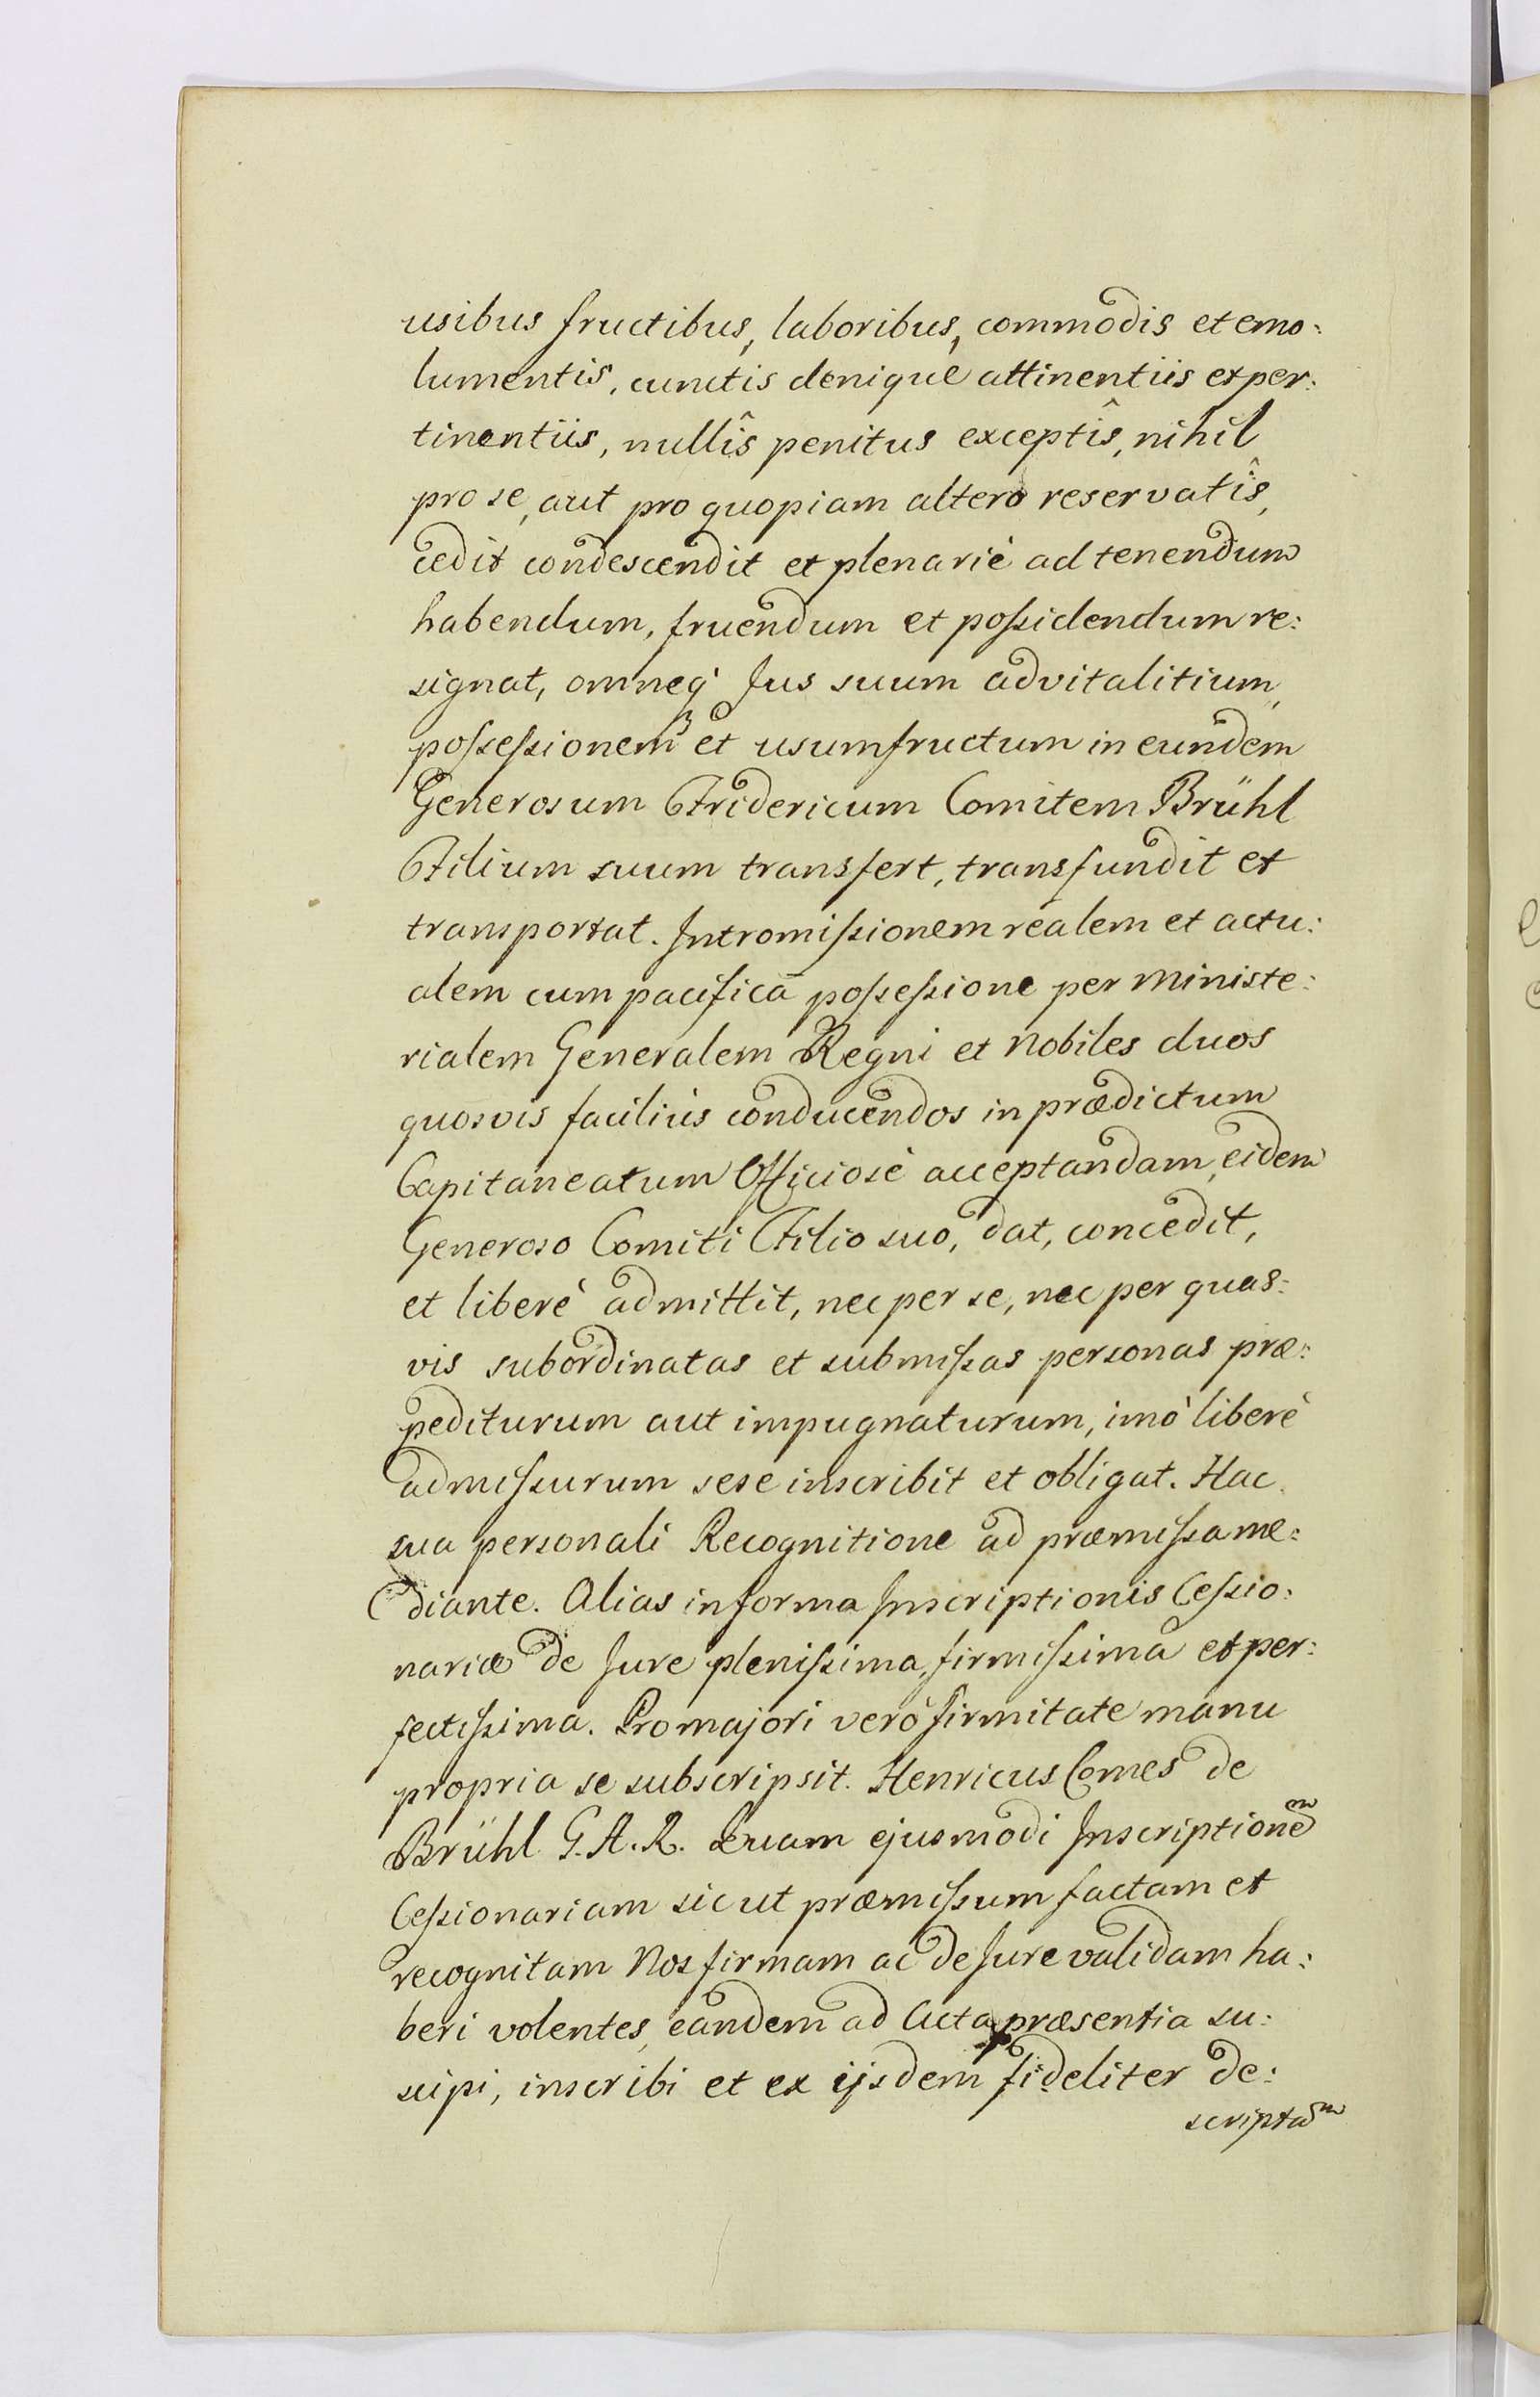 usibus fructibus, laboribus, commodis et emo:
lumentis, cunctis denique attinentiis et per:
tinentiis, nullîs penitus exceptîs, nihil
pro se, aut pro quopiam altero reservatîs,
cedit condescendit et plenariè ad tenendum
habendum, fruendum et poſsidendum re:
signat, omneq́ Jus suum advitalitium,
poſseſsionem et usumfructum in eundem
Generosum Fridericum Comitem Brühl
Filium suum transfert, transfundit et
transportat. Intromiſsionem realem et actu:
alem cum pacificâ poſseſsione per Ministe:
rialem Generalem Regni et Nobiles duos
quosvis faciliùs conducendos in prædictum
Capitaneatum Officiosè acceptandam, eidem
Generoso Comiti Filio suo, dat, concedit,
et liberè admittit, nec per se, nec per quas:
vis subordinatas et submiſsas personas præ:
pediturum aut impugnaturum, imò liberè
admiſsurum sese inscribit et obligat. Hac
sua personali Recognitione ad præmiſsa me:
diante. Alias in forma Inscriptionis Ceſsio:
nariæ de Jure pleniſsima, firmiſsima et per:
fectiſsima. Pro majori verò firmitate manu
propria se subscripsit. Henricus Comes de
Brühl G. A. R. Quam ejusmodi Inscriptionem
Ceſsionariam sicut præmiſsum factam et
recognitam Nos firmam ac de Jure validam ha:
beri volentes, eandem ad Acta præsentia su:
scipi, inscribi et ex ijsdem fideliter de:
scriptam